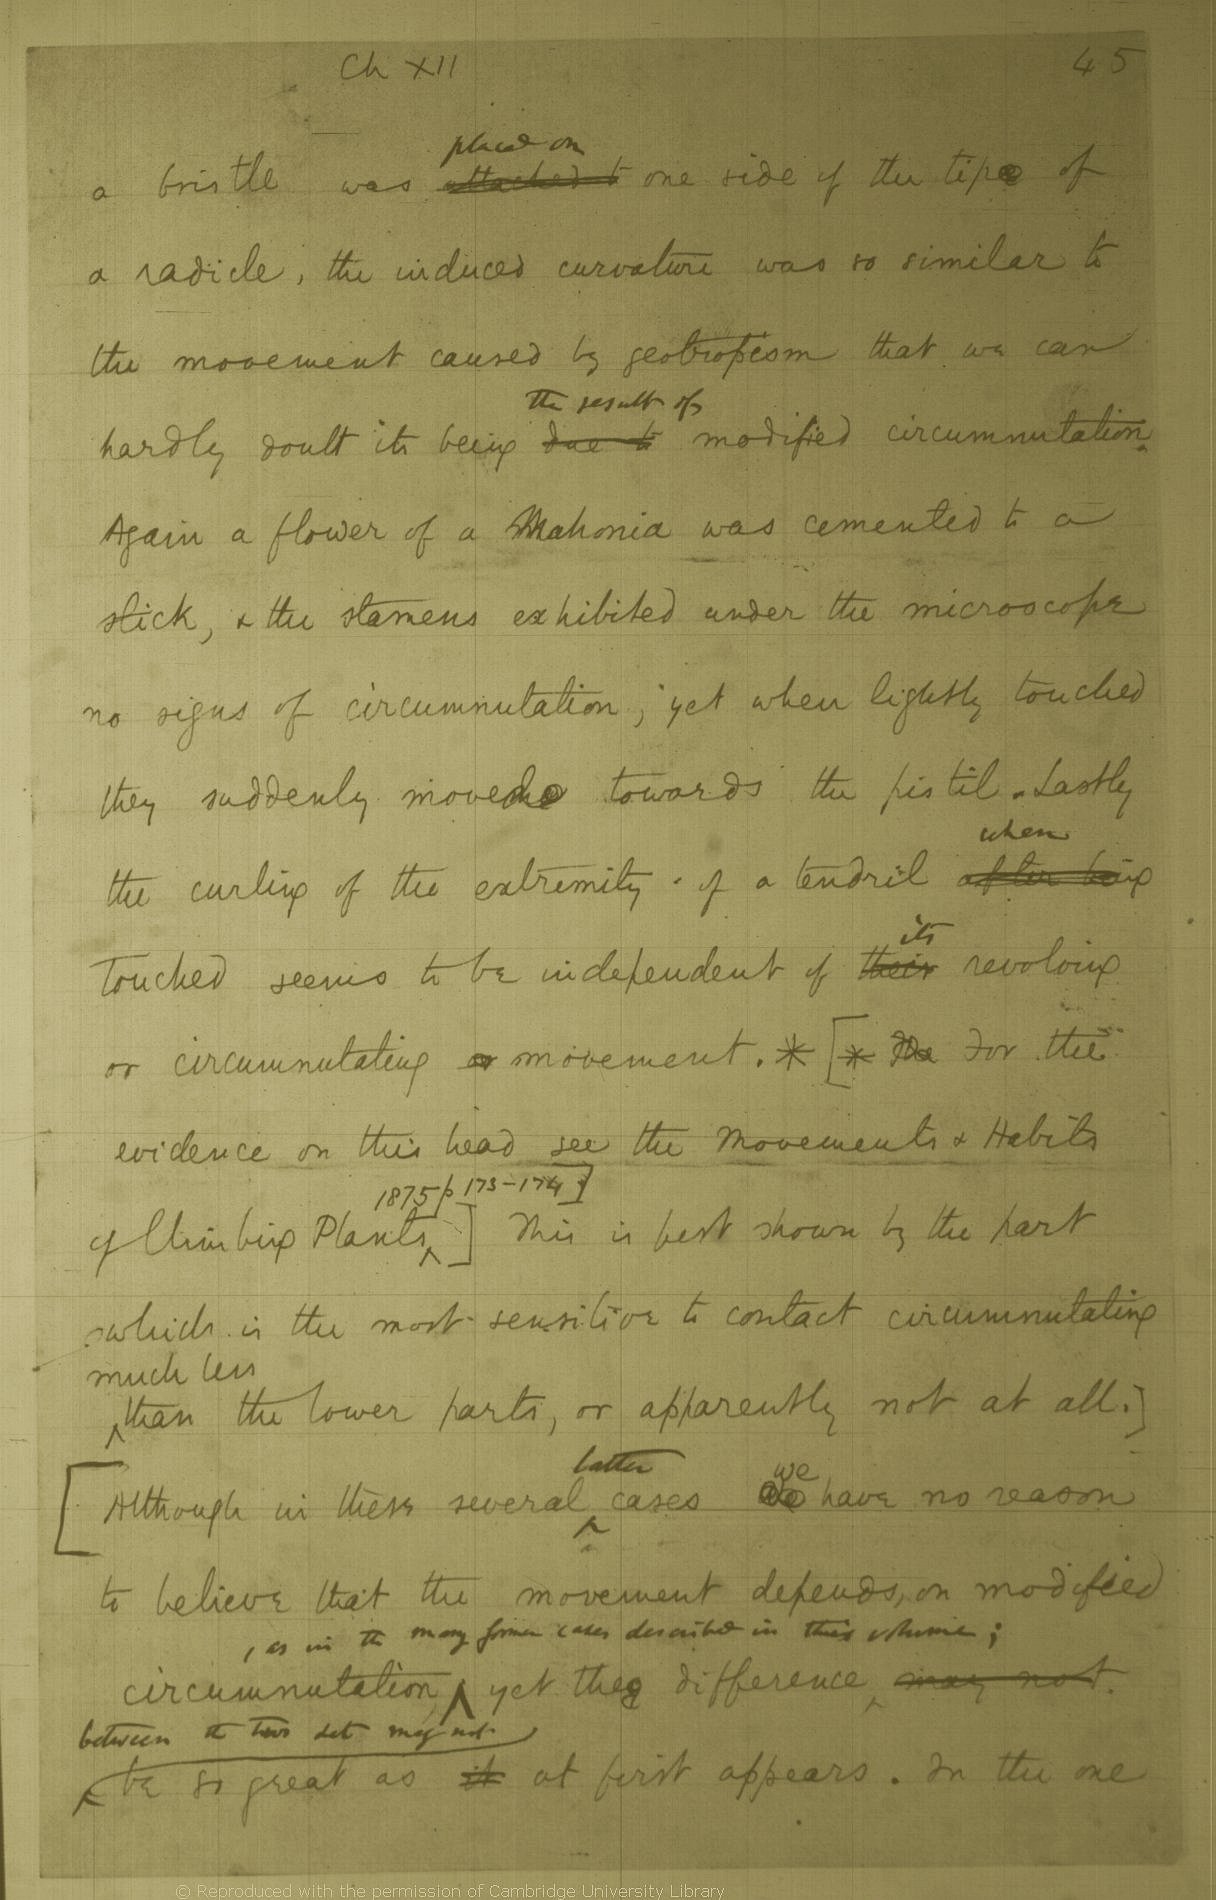 Ch XII 45
placed on
a bristle was attached to one side of the tip of
a radicle, the induced curvature was so similar to
the movement caused by geotropism that we can
the result of
hardly doubt its being due to modified circumnutation.
Again a flower of a Mahonia was cemented to a
stick, & the stamens exhibited under the microscope
no signs of circumnutation; yet when lightly touched
they suddenly moved towards the pistil. Lastly
when
the curling of the extremity of a tendril after being
touched seems to be independent of their revolving
its
or circumnutating or movement. * [* The For the
evidence on this head see the Movements & Habits
1875 p 173-174]
of Climbing Plants ] This is best shown by the part
which is the most sensitive to contact circumnutating
much less
than the lower parts, or apparently not at all.]
latter we
[Although in these several cases have no reason
to believe that the movement depends, on modified
, as in the many former cases described in this volume;
circumnutation, yet the difference may not.
between the two sets may not
be so great as it at first appears. In the one
© Reproduced with the permission of Cambridge University Library